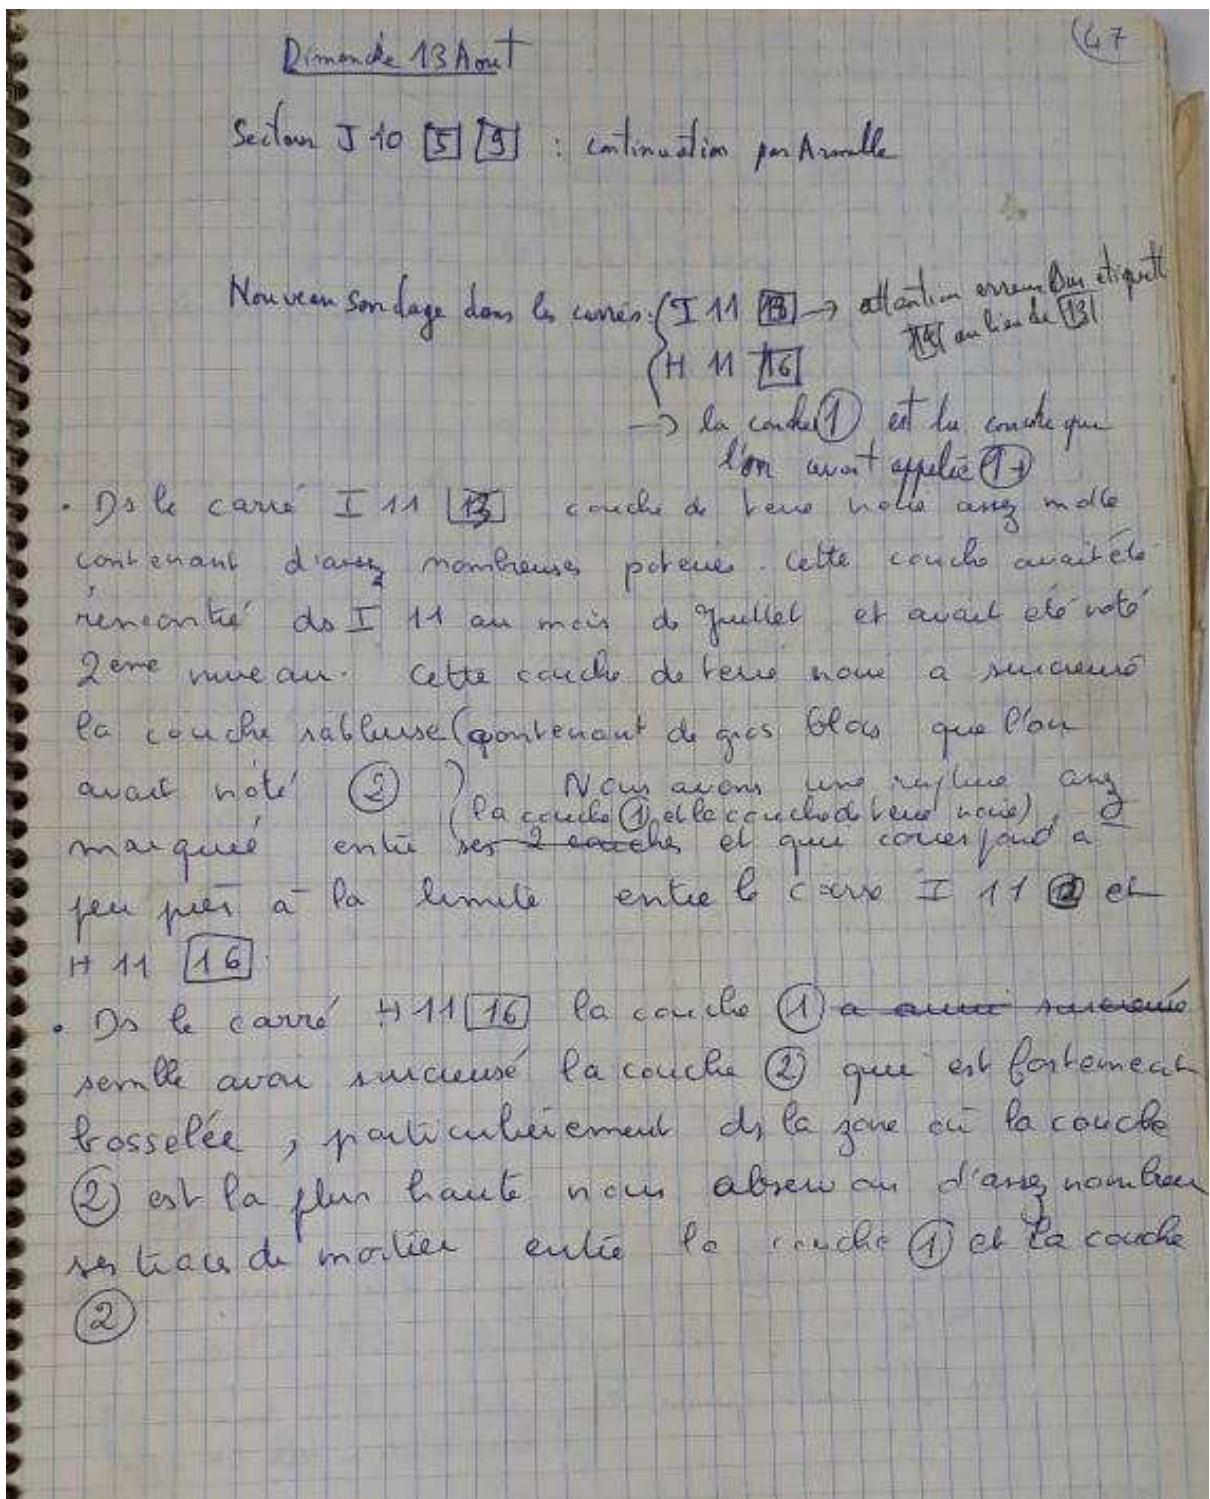 47
Dimanche 13 Aout
Secteur J 10 [5] [9] : continuation par Armelle
Nouveau sondage dans les carrés : I 11 [13] → attention erreur sur etiquett
au lieu de [13]
H 11 [16]
→ la couche (1) est la couche que
l'on avait appelée (1+)
• Ds le carré I 11 [13] couche de terre noire assez molle
contenant d'assez nombreuses poteries. Cette couche avait été
rencontré ds I 11 au mois de Juillet et avait été noté
2ème niveau. Cette couche de terre noire a surcreusé
la couche sableuse (contenant de gros blocs que l'on
avait noté (2) ) Nous avons une rupture assez
(la couche (1) et la couche de terre noire)
marquée entre ses 2 couches et qui correspond à
peu près à la limite entre le carré I 11 et
H 11 [16].
• Ds le carré H 11 [16] la couche (1) a aussi surcreusé
semble avoir surcreusé la couche (2) qui est fortement
bosselée, particulièrement ds la zone où la couche
(2) est la plus haute nous observons d'assez nombreu
ses traces de mortier entre la couche (1) et la couche
(2)